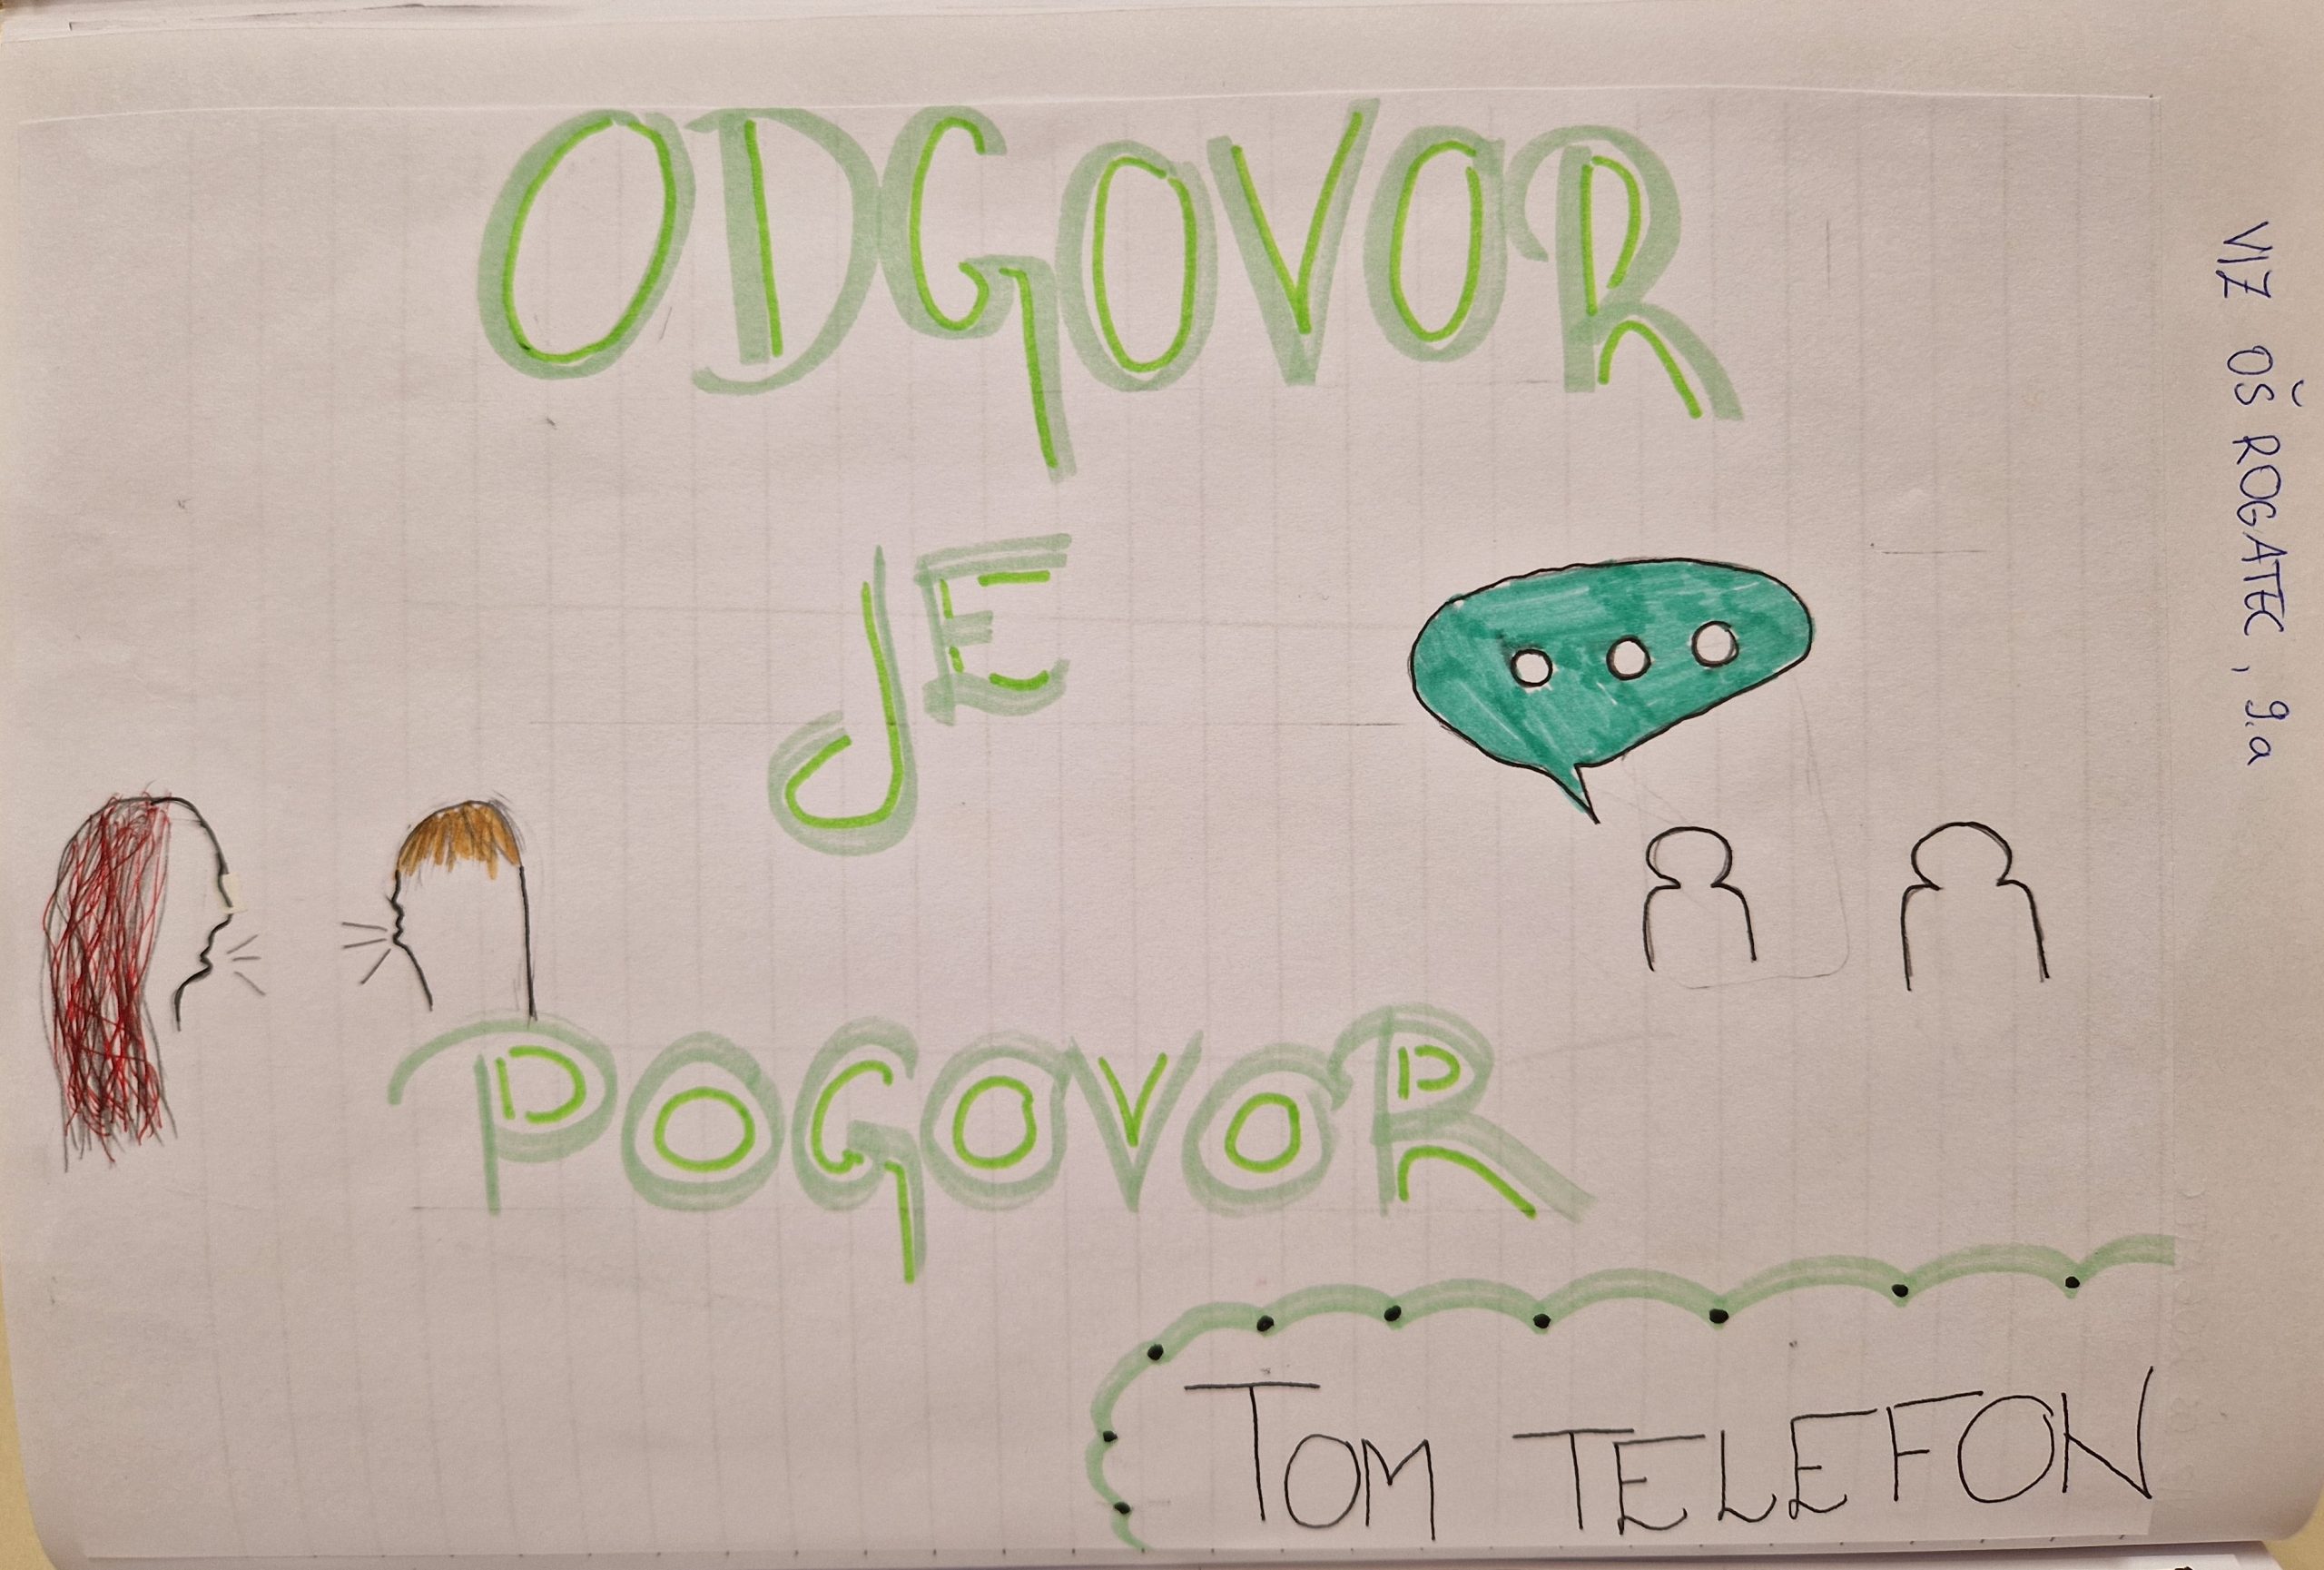 ODGOVOR
JE
POGOVOR
TOM TELEFON
VIZ OŠ ROGATEC, 9.a